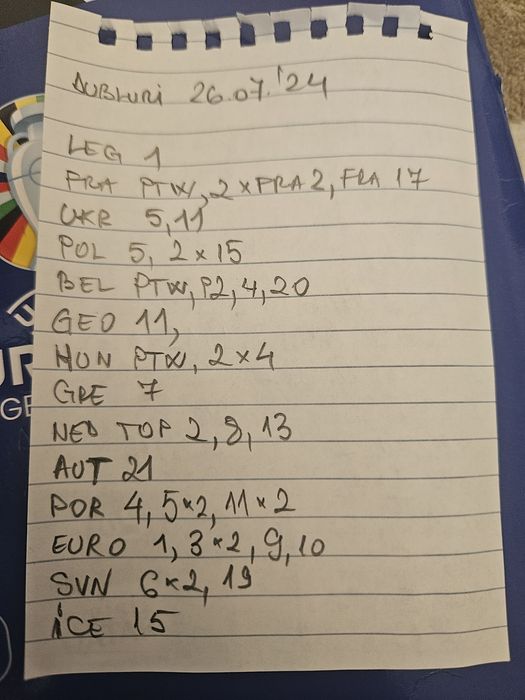 DUBLURI 26.07.'24
LEG 1
FRA PTW, 2xFRA2, FRA 17
UKR 5,11
POL 5, 2x15
BEL PTW, P2, 4, 20
GEO 11,
HUN PTW, 2x4
GRE 7
NED TOP 2, 8, 13
AUT 21
POR 4, 5x2, 11x2
EURO 1, 3x2, 9, 10
SVN 6x2, 19
ICE 15